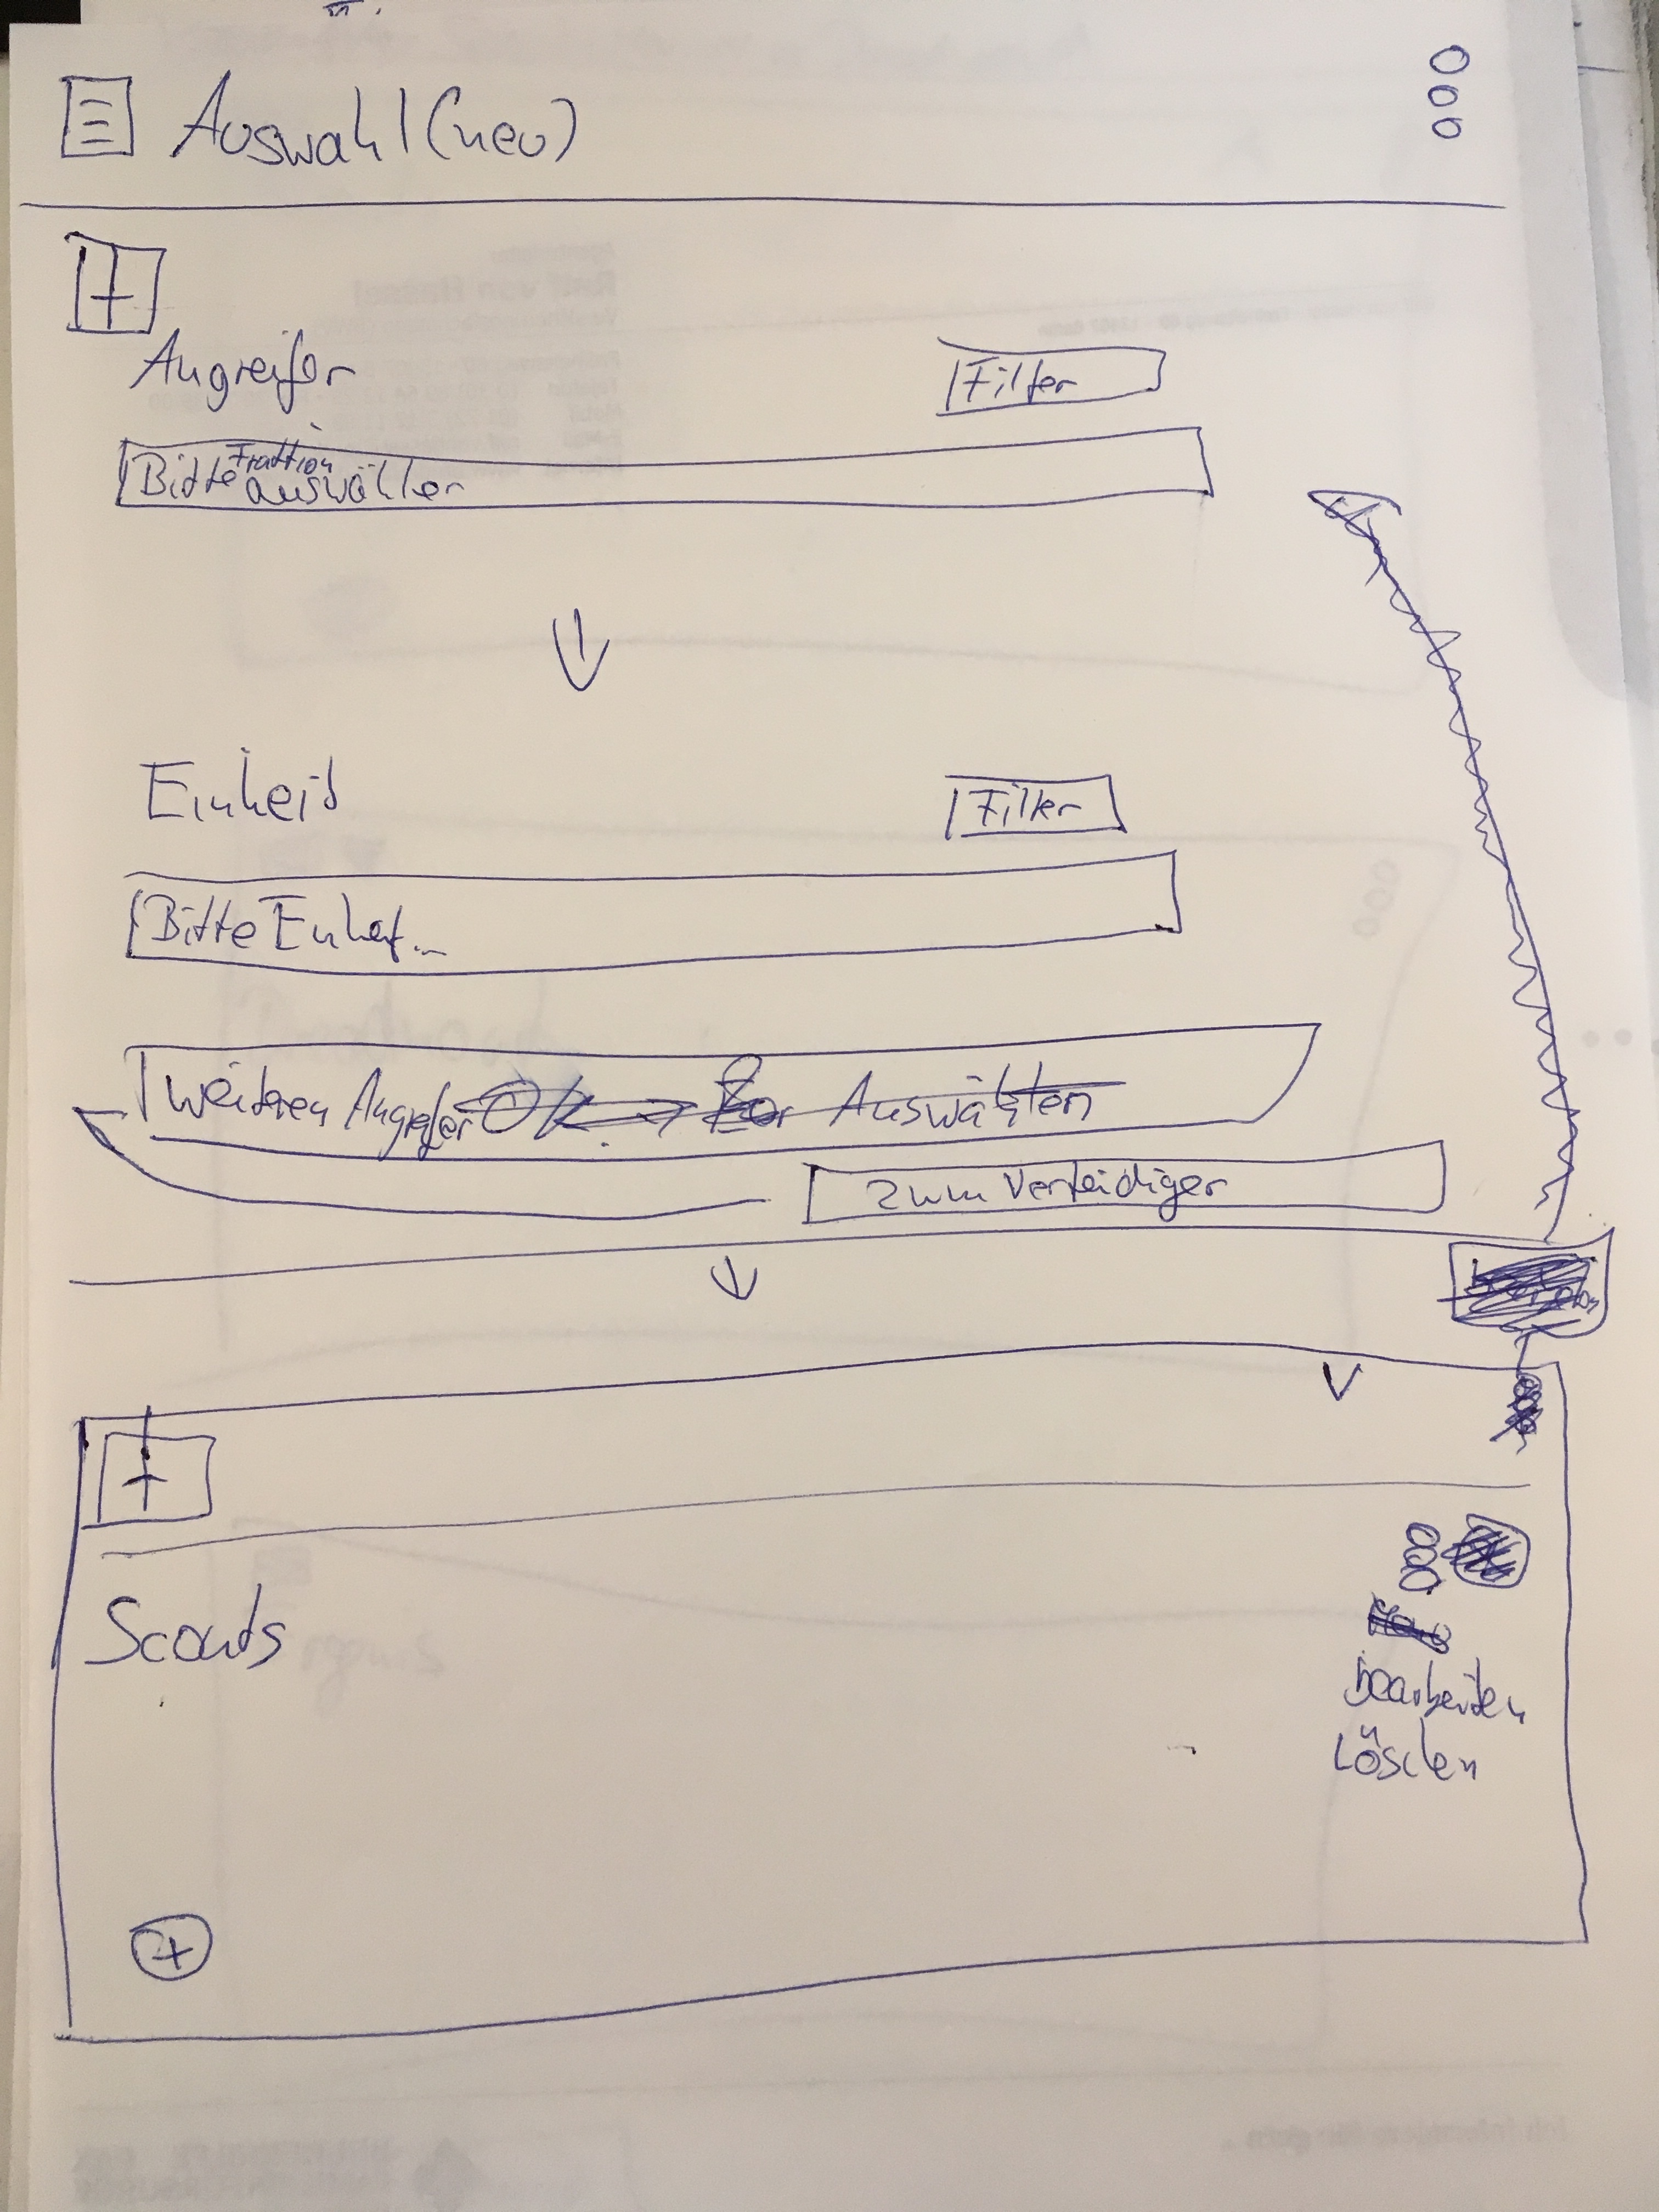 Auswahl (neu)
Angreifer
Filter
Bitte Fraktion auswählen
Einheit
Filter
Bitte Einheit...
weiteren Angreifer Ok Auswählen
zum Verteidiger
Scouts
bearbeiten
Löschen